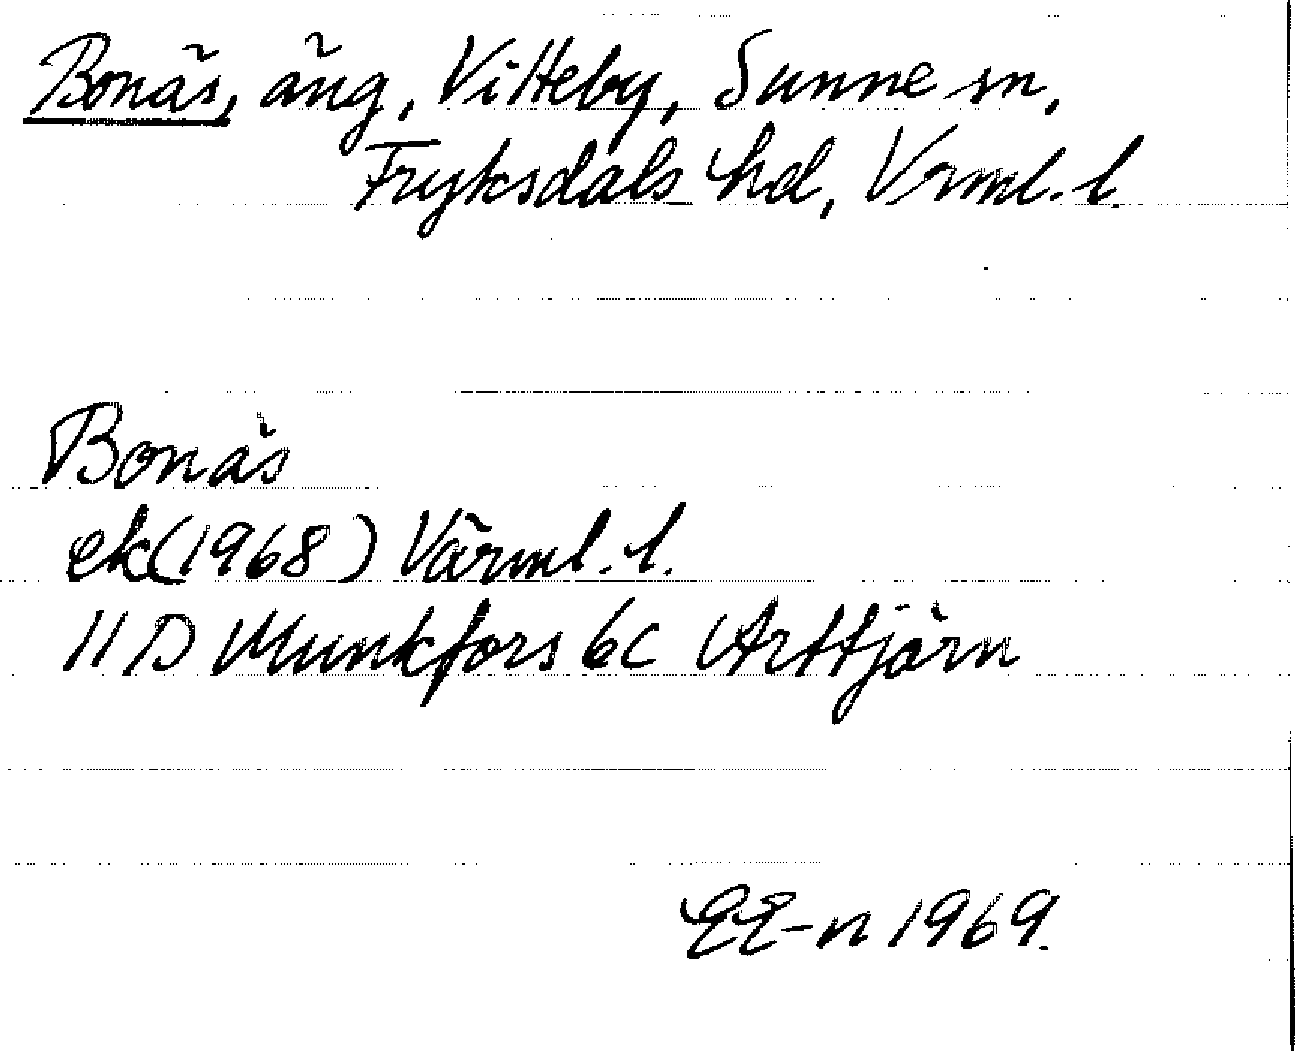 Bonäs, äng, Vitteby, Sunne sn,
Fryksdals hd, Vrml. l.
Bonäs
ek (1968) Värml. l.
11 D Munkfors 6c Arttjärn
EE-n 1969.